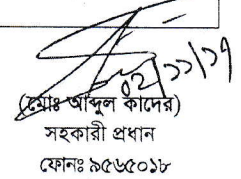 ০২/১১/১৭
(মোঃ আব্দুল কাদের)
সহকারী প্রধান
ফোনঃ ৯৫৬৫০১৮